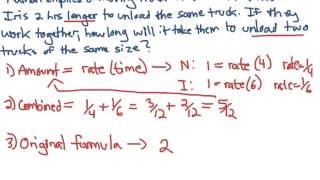 Iris 2 hrs longer to unload the same truck. If they
work together, how long will it take them to unload two
trucks of the same size?
1) Amount = rate (time) → N: 1 = rate (4) rate = 1/4
I: 1 = rate (6) rate = 1/6
2) Combined = 1/4 + 1/6 = 3/12 + 2/12 = 5/12
3) Original formula → 2